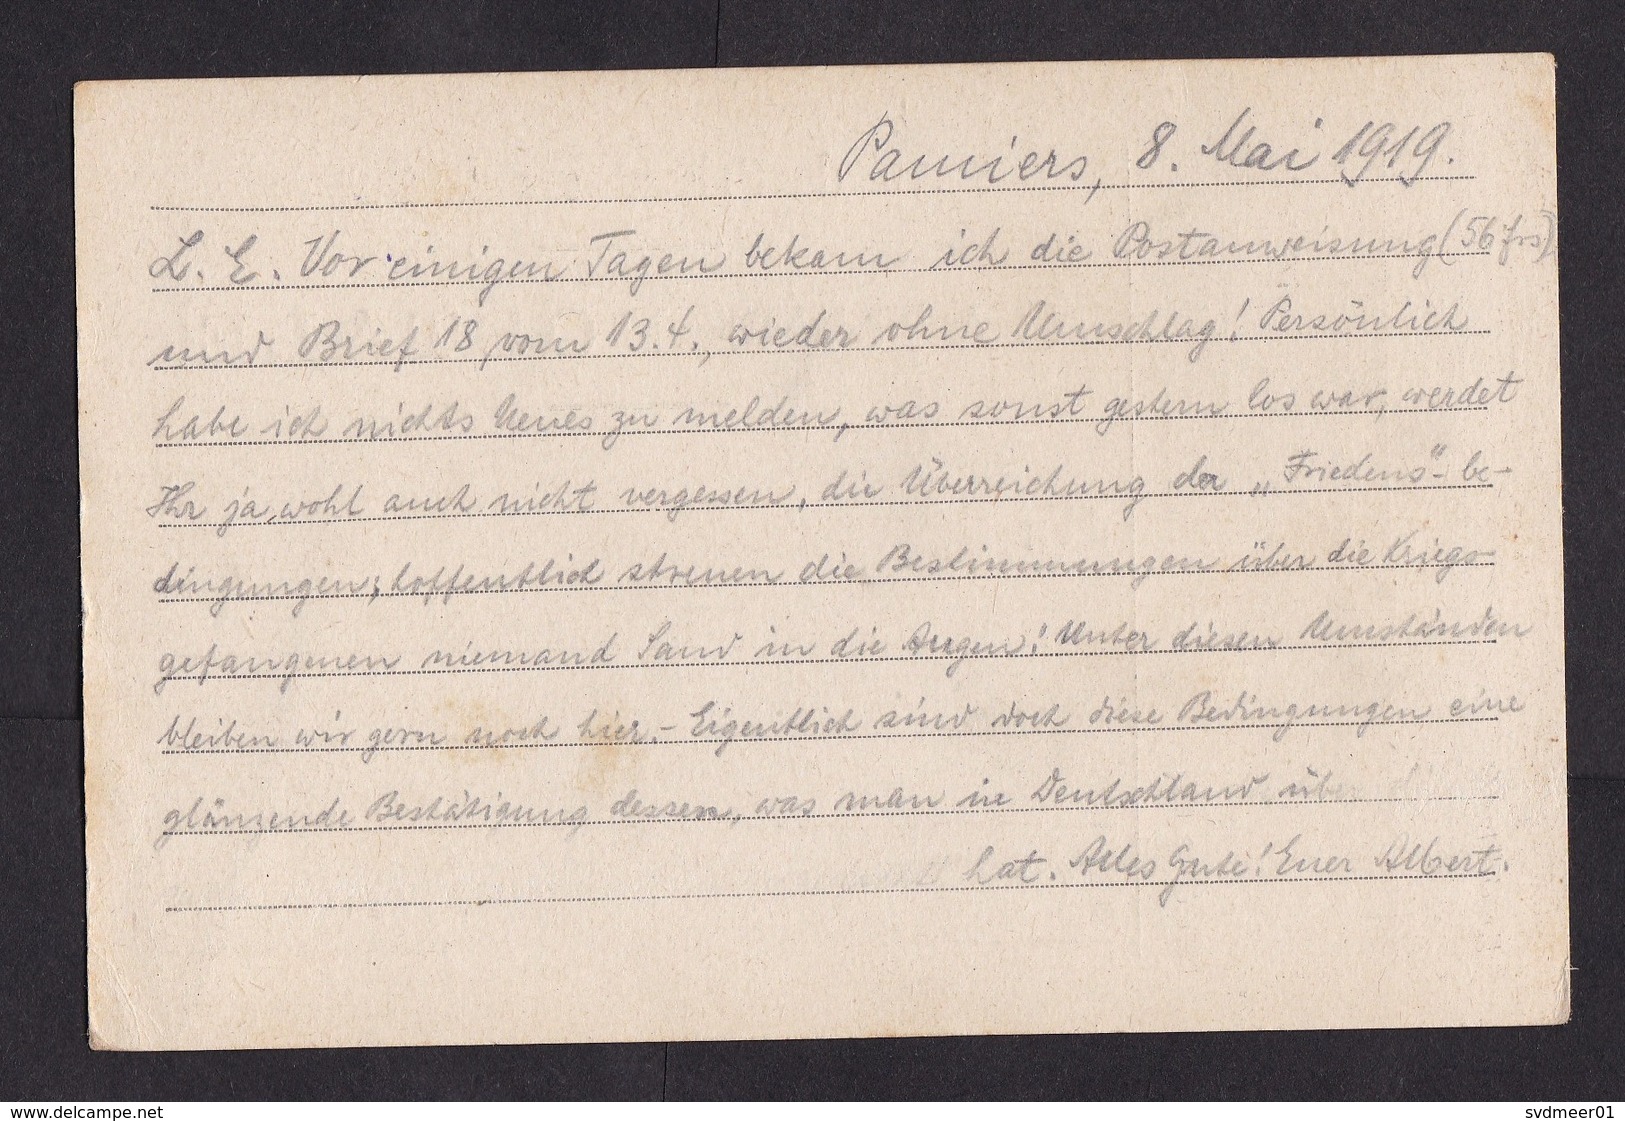 Pamiers, 8. Mai 1919.
L. E. Vor einigen Tagen bekam ich die Postanweisung (56 frs)
und Brief 18 vom 13.4., wieder ohne Umschlag! Persönlich
habe ich nichts Neues zu melden, was sonst gestern los war, werdet
Ihr ja wohl auch nicht vergessen, die Überreichung der „Friedens"-be-
dingungen; hoffentlich streuen die Bestimmungen über die Kriegs-
gefangenen niemand Sand in die Augen! Unter diesen Umständen
bleiben wir gern noch hier. - Eigentlich sind doch diese Bedingungen eine
glänzende Bestätigung dessen, was man in Deutschland über
hat. Alles Gute! Euer Albert.
www.delcampe.net
svdmeer01